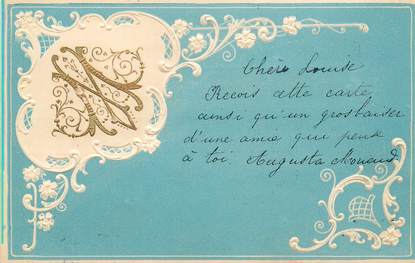 N
Chère Louise
Reçois cette carte
ainsi qu'un gros baiser
d'une amie qui pense
à toi. Augusta